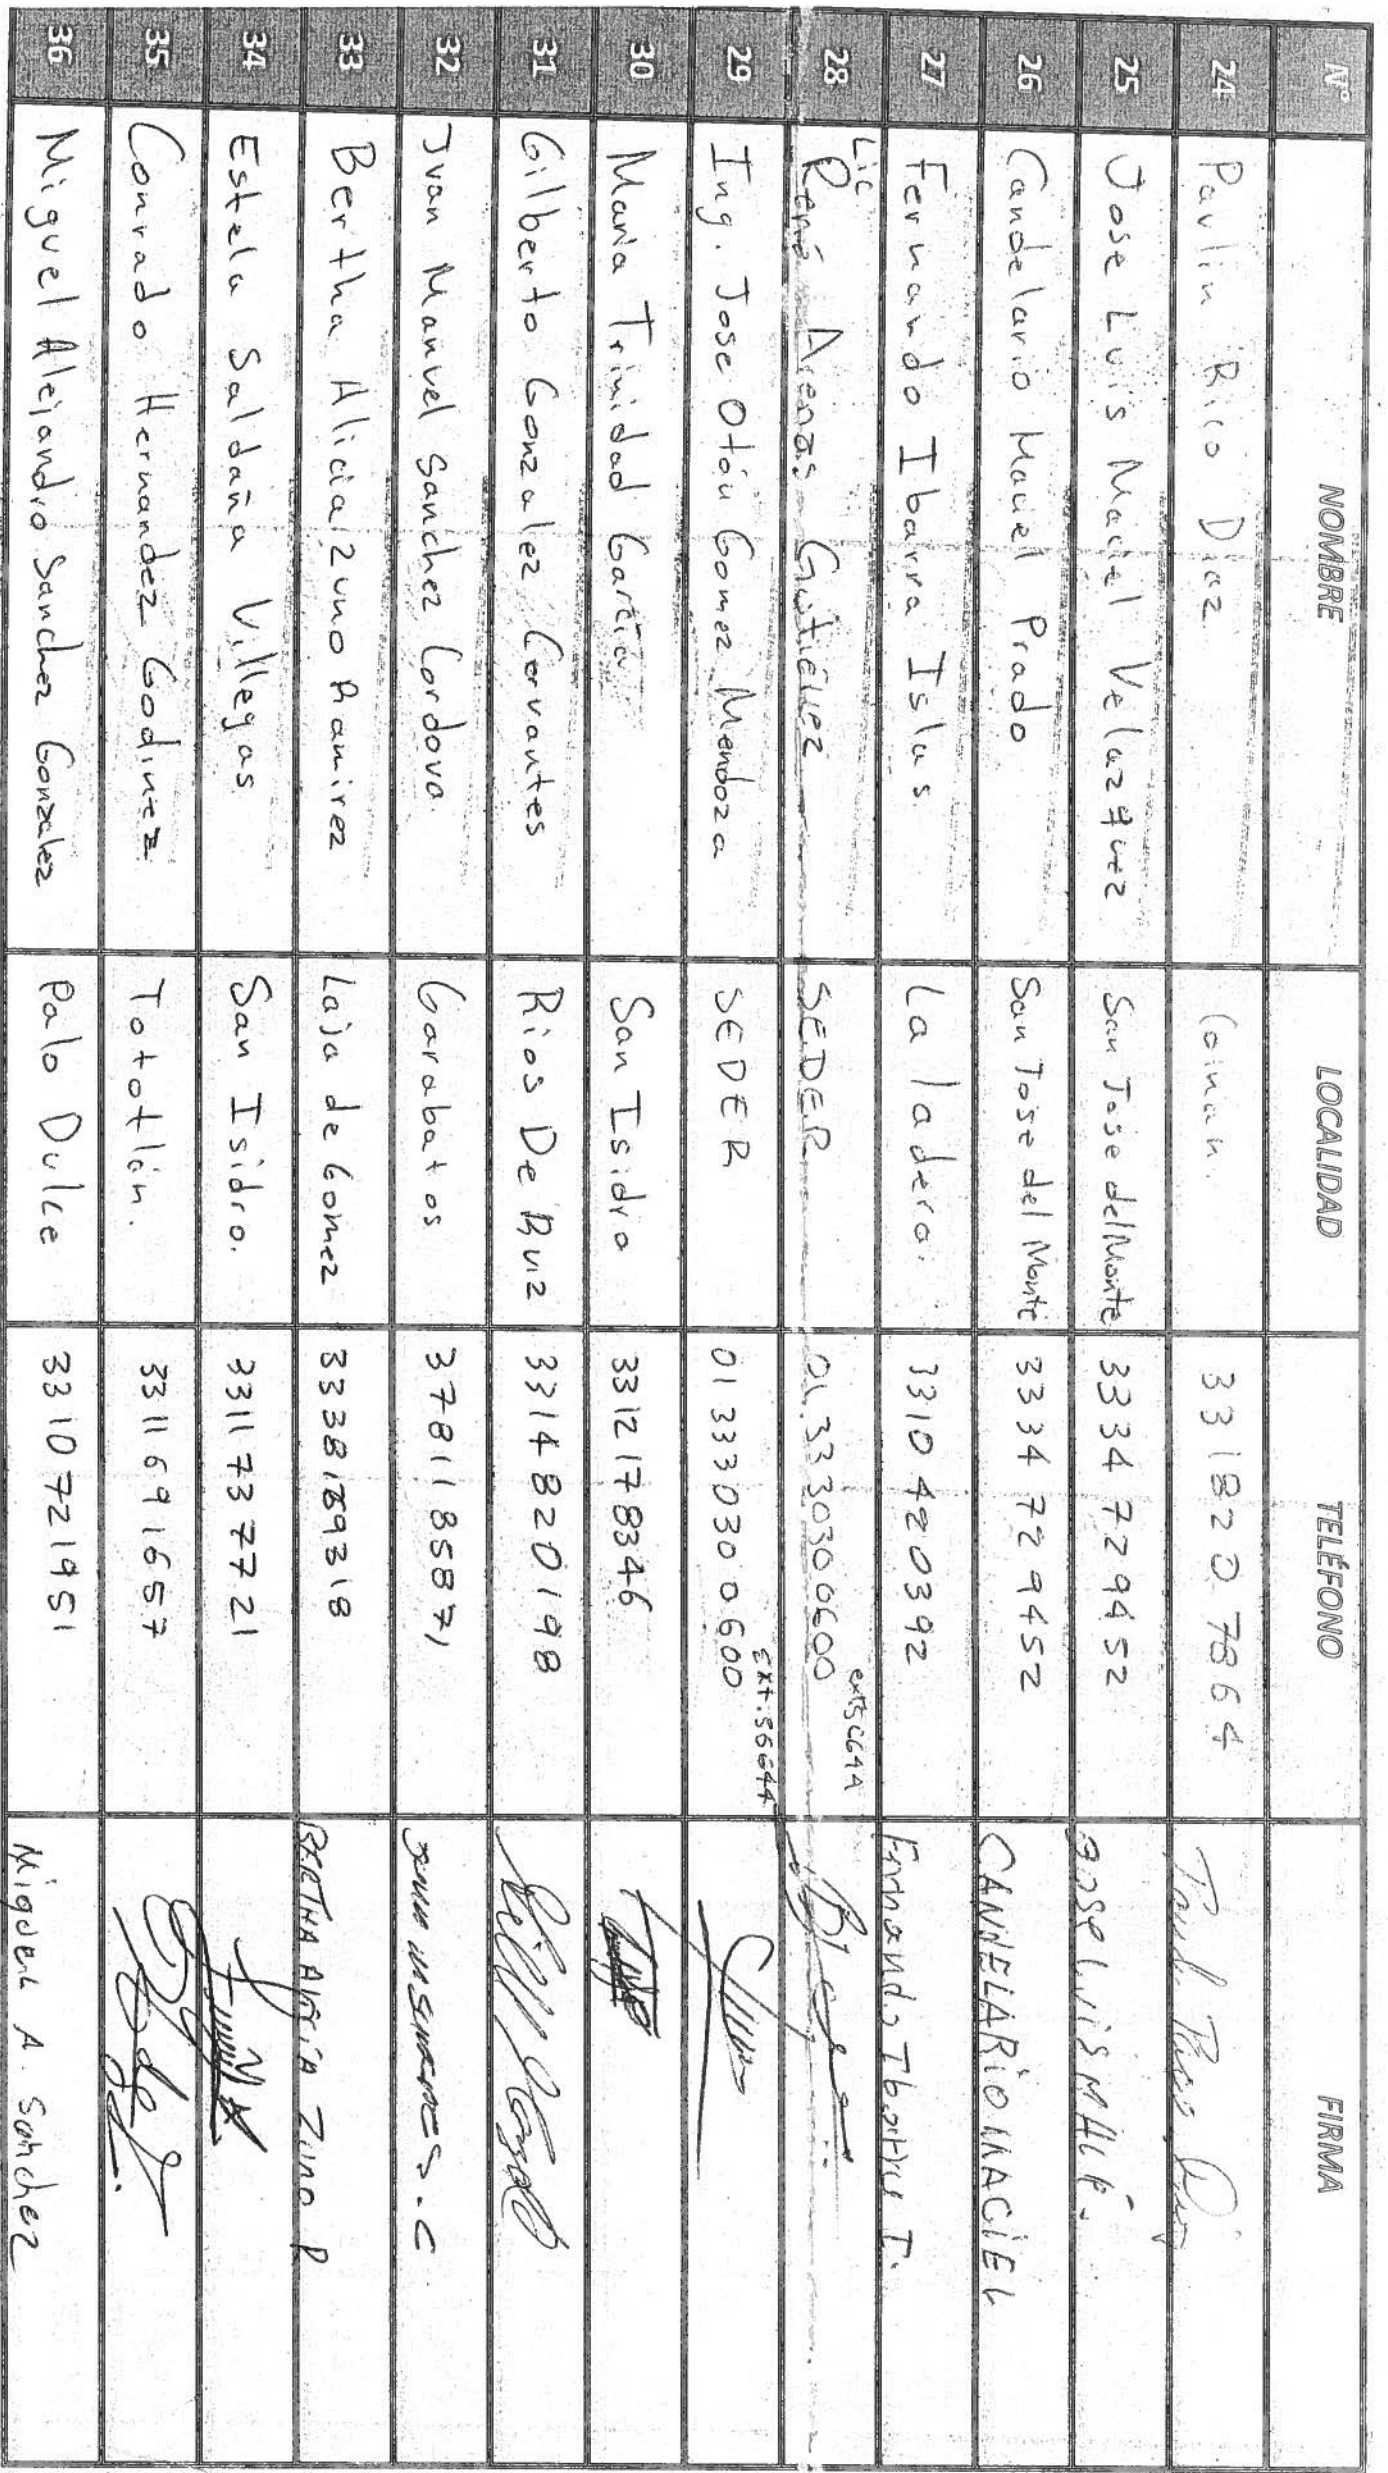 Nº NOMBRE LOCALIDAD TELÉFONO FIRMA
24 Paulin Rico Diaz. Coinan. 33 1820 7864
25 Jose Luis Maciel Velazquez San Jose del Monte 3334 729452 JOSE LUIS MACI.
26 Candelario Maciel Prado San Jose del Monte 3334 729452 CANDELARIO MACIEL
27 Fernando Ibarra Islas La ladera. 3310420392 Fernando Ibarra I.
28 Lic René Arenas Gutiérrez SEDER 01.3330300600
29 Ing. Jose Otón Gomez Mendoza SEDER 01 3330300600 ext:56644
30 Maria Trinidad Garcia San Isidro 3312178346
31 Gilberto Gonzalez Cervantes Rios De Ruiz 3314820198
32 Juan Manuel Sanchez Cordova. Garabatos 3781185871
33 Bertha Alicia Zuno Ramirez Laja de Gomez BERTHA ALICIA Zuno R
34 Estela Saldaña Villegas San Isidro. 3311737721
35 Conrado Hernandez Godinez Tototlán. 3311691657
36 Miguel Alejandro Sanchez Gonzalez Palo Dulce 3310721951 Miguel A. Sanchez